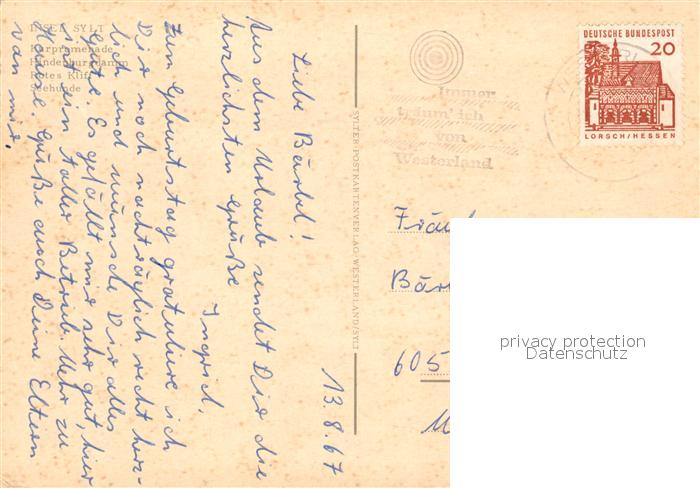 INSEL SYLT
Kurpromenade
Hindenburgdamm
Rotes Kliff
Seehunde
13.8.67
Liebe Bärbel!
Aus dem Urlaub sendet Dir die
herzlichsten Grüße
Ingrid.
Zum Geburtstag gratuliere ich
Dir noch nachträglich recht herz-
lich und wünsche Dir alles
Gute. Es gefällt mir sehr gut, hier
ist ein toller Betrieb. Mehr zu
Hause. Grüße auch Deine Eltern
von mir.
SYLTER-POSTKARTENVERLAG-WESTERLAND/SYLT
Immer
träum' ich
von
Westerland
DEUTSCHE BUNDESPOST
20
LORSCH/HESSEN
605
privacy protection
Datenschutz